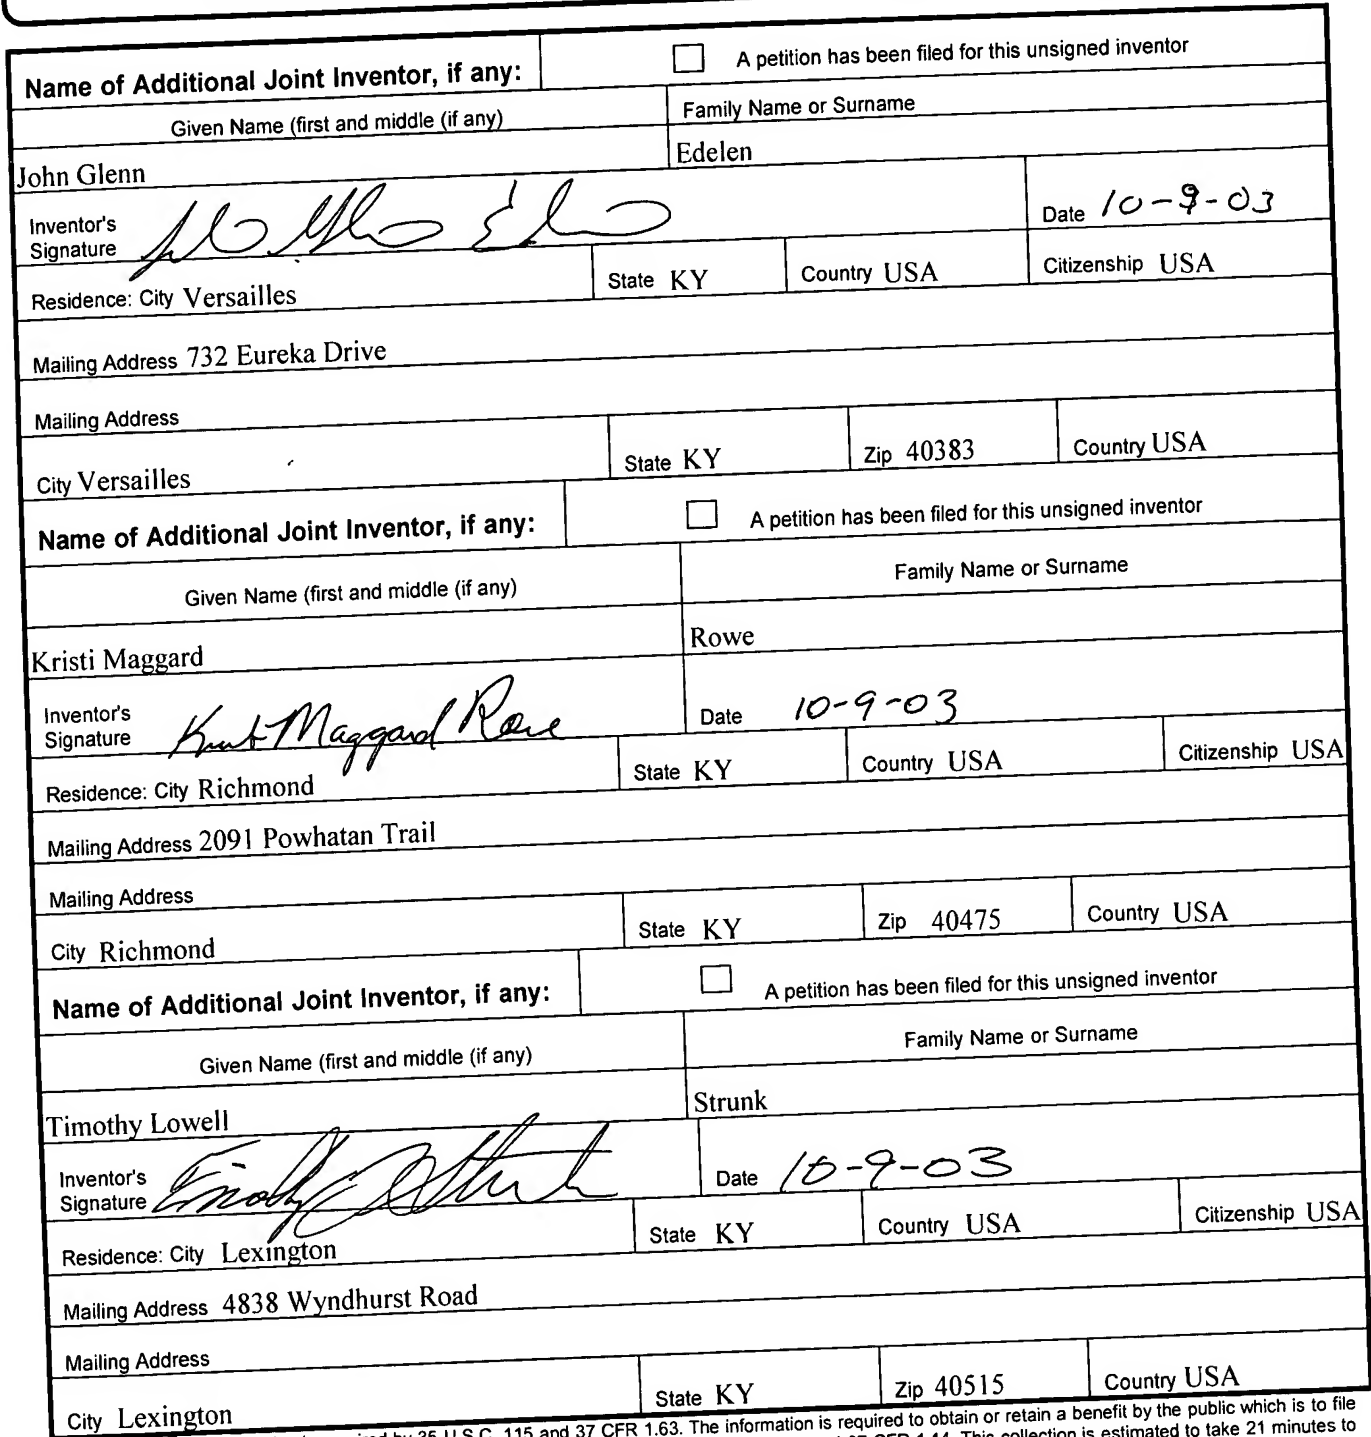 Name of Additional Joint Inventor, if any: A petition has been filed for this unsigned inventor
Given Name (first and middle (if any) Family Name or Surname
John Glenn Edelen
Inventor's Signature Date 10-9-03
Residence: City Versailles State KY Country USA Citizenship USA
Mailing Address 732 Eureka Drive
Mailing Address
City Versailles State KY Zip 40383 Country USA
Name of Additional Joint Inventor, if any: A petition has been filed for this unsigned inventor
Given Name (first and middle (if any) Family Name or Surname
Kristi Maggard Rowe
Inventor's Signature Kristi Maggard Rowe Date 10-9-03
Residence: City Richmond State KY Country USA Citizenship USA
Mailing Address 2091 Powhatan Trail
Mailing Address
City Richmond State KY Zip 40475 Country USA
Name of Additional Joint Inventor, if any: A petition has been filed for this unsigned inventor
Given Name (first and middle (if any) Family Name or Surname
Timothy Lowell Strunk
Inventor's Signature Timothy L Strunk Date 10-9-03
Residence: City Lexington State KY Country USA Citizenship USA
Mailing Address 4838 Wyndhurst Road
Mailing Address
City Lexington State KY Zip 40515 Country USA
by 35 U.S.C. 115 and 37 CFR 1.63. The information is required to obtain or retain a benefit by the public which is to file
This collection is estimated to take 21 minutes to